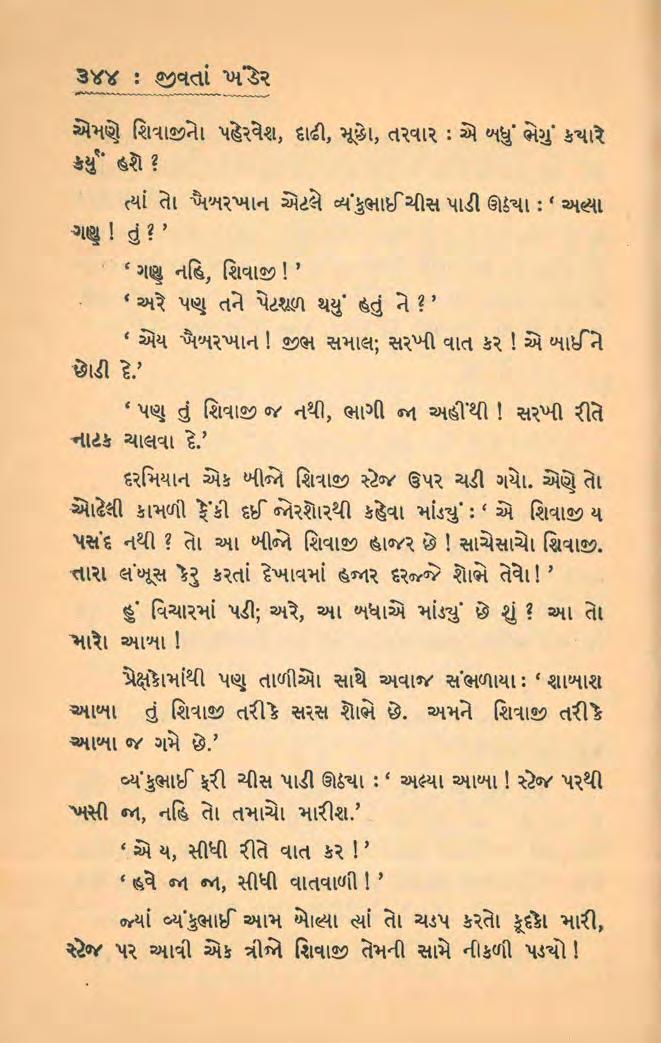 ૩૪૪ : જીવતાં ખંડેર
એમણે શિવાજીનો પહેરવેશ, દાઢી, મૂછો, તરવાર : એ બધું ભેગું કયારે
કર્યું હશે ?
ત્યાં તો ખૈબરખાન એટલે વ્યંકુભાઈ ચીસ પાડી ઊઠયા : ‘ અલ્યા
ગણુ ! તું ? ’
‘ ગણુ નહિ, શિવાજી ! ’
‘ અરે પણ તને પેટશૂળ થયું હતું ને ? ’
‘ એય ખૈબરખાન ! જીભ સમાલ; સરખી વાત કર ! એ બાઈને
છોડી દે.’
‘ પણ તું શિવાજી જ નથી, ભાગી જા અહીંથી ! સરખી રીતે
નાટક ચાલવા દે.’
દરમિયાન એક બીજો શિવાજી સ્ટેજ ઉપર ચડી ગયો. એણે તો
ઓઢેલી કામળી ફેંકી દઈ જોરશોરથી કહેવા માંડયું : ‘ એ શિવાજી ય
પસંદ નથી ? તો આ બીજો શિવાજી હાજર છે ! સાચેસાચો શિવાજી.
તારા લંબૂસ કેરુ કરતાં દેખાવમાં હજાર દરજ્જે શોભે તેવો ! ’
હું વિચારમાં પડી; અરે, આ બધાએ માંડયું છે શું ? આ તો
મારો આબા !
પ્રેક્ષકોમાંથી પણ તાળીઓ સાથે અવાજ સંભળાયા : ‘ શાબાશ
આબા તું શિવાજી તરીકે સરસ શોભે છે. અમને શિવાજી તરીકે
આબા જ ગમે છે.’
વ્યંકુભાઈ ફરી ચીસ પાડી ઊઠયા : ‘ અલ્યા આબા ! સ્ટેજ પરથી
ખસી જા, નહિ તો તમાચો મારીશ.’
‘ એ ય, સીધી રીતે વાત કર ! ’
‘ હવે જા જા, સીધી વાતવાળી ! ’
જ્યાં વ્યંકુભાઈ આમ બોલ્યા ત્યાં તો ચડપ કરતો કૂદકો મારી,
સ્ટેજ પર આવી એક ત્રીજો શિવાજી તેમની સામે નીકળી પડયો !